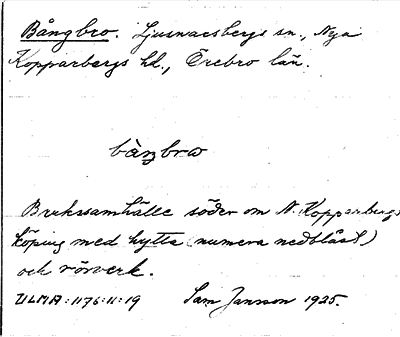 Bångbro. Ljusnarsbergs sn., Nya
Kopparbergs hd., Örebro län.
bàŋbrω
Brukssamhälle söder om N. Kopparbergs
köping med hytta (numera nedblåst)
och rörverk.
ULMA:1176:11:19 Sam Jansson 1925.